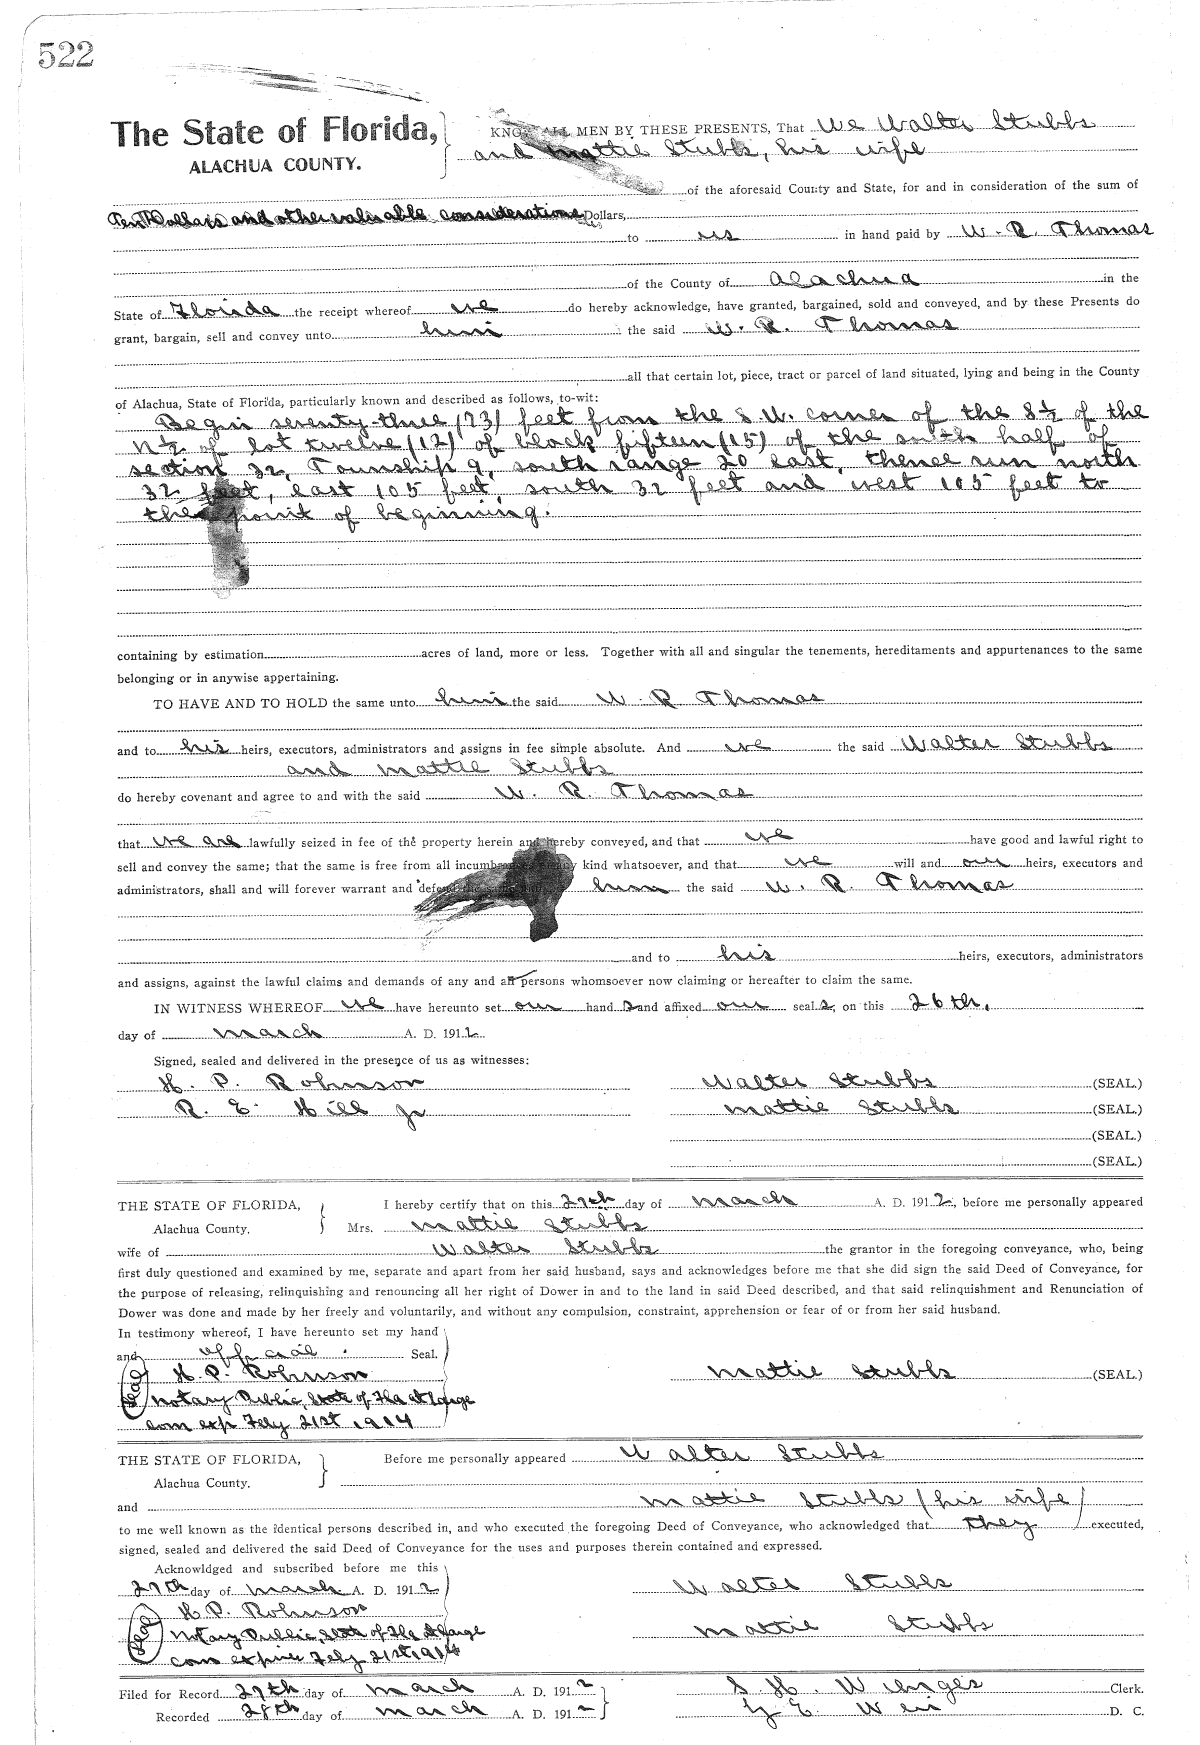 522
The State of Florida,
ALACHUA COUNTY.
KNOW ALL MEN BY THESE PRESENTS, That We Walter Stubbs
and Mattie Stubbs, his wife
of the aforesaid County and State, for and in consideration of the sum of
Ten Dollars and other valuable considerations Dollars,
to us in hand paid by W. R. Thomas
of the County of Alachua in the
State of Florida the receipt whereof we do hereby acknowledge, have granted, bargained, sold and conveyed, and by these Presents do
grant, bargain, sell and convey unto him the said W. R. Thomas
all that certain lot, piece, tract or parcel of land situated, lying and being in the County
of Alachua, State of Florida, particularly known and described as follows, to-wit:
Begin seventy-three (73) feet from the S.W. corner of the S½ of the
N½ of lot twelve (12) of block fifteen (15) of the south half of
section 32, Township 9, south range 20 east, thence run north
32 feet, east 105 feet, south 32 feet and west 105 feet to
the point of beginning.
containing by estimation acres of land, more or less. Together with all and singular the tenements, hereditaments and appurtenances to the same
belonging or in anywise appertaining.
TO HAVE AND TO HOLD the same unto him the said W. R Thomas
and to his heirs, executors, administrators and assigns in fee simple absolute. And we the said Walter Stubbs
and Mattie Stubbs
do hereby covenant and agree to and with the said W. R. Thomas
that we are lawfully seized in fee of the property herein and hereby conveyed, and that we have good and lawful right to
sell and convey the same; that the same is free from all incumbrances kind whatsoever, and that we will and our heirs, executors and
administrators, shall and will forever warrant and defend the same him the said W. R. Thomas
and to his heirs, executors, administrators
and assigns, against the lawful claims and demands of any and all persons whomsoever now claiming or hereafter to claim the same.
IN WITNESS WHEREOF we have hereunto set our hand s and affixed our seal s, on this 26th,
day of March A. D. 1912
Signed, sealed and delivered in the presence of us as witnesses:
H. P. Robinson Walter Stubbs (SEAL.)
R. E. Hill Jr Mattie Stubbs (SEAL.)
(SEAL.)
(SEAL.)
THE STATE OF FLORIDA,
Alachua County.
I hereby certify that on this 27th day of March A. D. 1912, before me personally appeared
Mrs. Mattie Stubbs
wife of Walter Stubbs the grantor in the foregoing conveyance, who, being
first duly questioned and examined by me, separate and apart from her said husband, says and acknowledges before me that she did sign the said Deed of Conveyance, for
the purpose of releasing, relinquishing and renouncing all her right of Dower in and to the land in said Deed described, and that said relinquishment and Renunciation of
Dower was done and made by her freely and voluntarily, and without any compulsion, constraint, apprehension or fear of or from her said husband.
In testimony whereof, I have hereunto set my hand
and official Seal.
Seal H. P. Robinson Mattie Stubbs (SEAL)
Notary Public, State of Fla at Large
com exp Feby 21st 1914
THE STATE OF FLORIDA,
Alachua County.
Before me personally appeared Walter Stubbs
and Mattie Stubbs (his wife)
to me well known as the identical persons described in, and who executed the foregoing Deed of Conveyance, who acknowledged that they executed,
signed, sealed and delivered the said Deed of Conveyance for the uses and purposes therein contained and expressed.
Acknowldged and subscribed before me this
27th day of March A. D. 1912 Walter Stubbs
H. P. Robinson
Seal Notary Public, State of Fla at Large Mattie Stubbs
com expires Feby 21st, 1914
Filed for Record 27th day of March A. D. 1912 S. H. Wienges Clerk.
Recorded 28th day of March A. D. 191 E. Weir D. C.